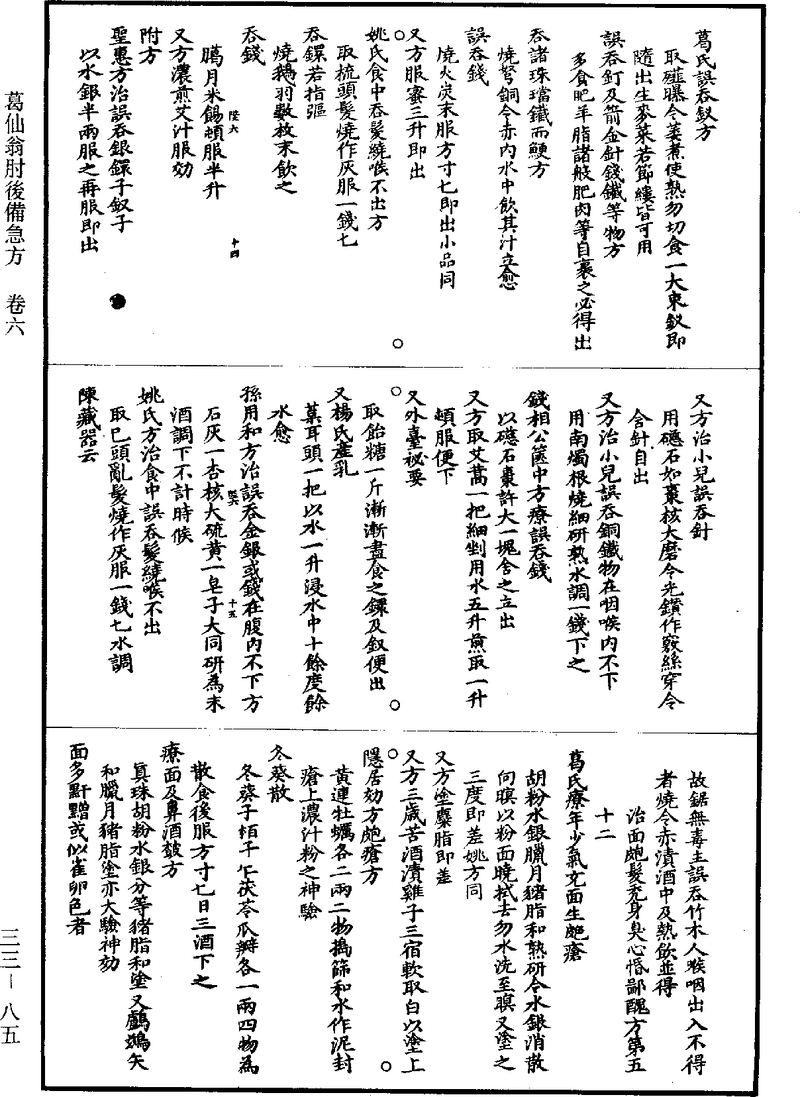 葛仙翁肘後備急方　卷六
葛氏誤吞釵方
取薤曝令萎煮使熟勿切食一大束釵即
隨出生麥菜若節縷皆可用
誤吞釘及箭金針錢鐵等物方
多食肥羊脂諸般肥肉等自裹之必得出
吞諸珠璫鐵而鯁方
燒弩銅令赤內水中飲其汁立愈
誤吞錢
燒火炭末服方寸匕即出小品同
又方服蜜三升即出
姚氏食中吞髮繞喉不出方
取梳頭髮燒作灰服一錢匕
吞鐶若指彄
燒鵝羽數枚末飲之
吞錢
臈月米餳頓服半升
陞六
十四
又方濃煎艾汁服効
附方
聖惠方治誤吞銀鐶子釵子
以水銀半兩服之再服即出
又方治小兒誤吞針
用礠石如棗核大磨令光鑽作竅絲穿令
含針自出
又方治小兒誤吞銅鐵物在咽喉內不下
用南燭根燒細研熟水調一錢下之
錢相公篋中方療誤吞錢
以礠石棗許大一塊含之立出
又方取艾蒿一把細剉用水五升煎取一升
頓服便下
又外臺祕要
取飴糖一斤漸漸盡食之鐶及釵便出
又楊氏產乳
葈耳頭一把以水一升浸水中十餘度餘
水愈
孫用和方治誤吞金銀或錢在腹內不下方
石灰一杏核大硫黃一皂子大同研為末
十五
酒調下不計時候
姚氏方治食中誤吞髮繞喉不出
取已頭亂髮燒作灰服一錢匕水調
陳藏器云
故鋸無毒主誤吞竹木人喉咽出入不得
者燒令赤漬酒中及熱飲並得
治面皰髮禿身臭心惛鄙醜方第五
十二
葛氏療年少氣充面生皰瘡
胡粉水銀臘月豬脂和熟研令水銀消散
向暝以粉面曉拭去勿水洗至暝又塗之
三度即差姚方同
又方塗麋脂即差
又方三歲苦酒漬雞子三宿軟取白以塗上
隱居効方皰瘡方
黃連牡蠣各二兩二物擣篩和水作泥封
瘡上濃汁粉之神驗
冬葵散
冬葵子栢子仁茯苓瓜瓣各一兩四物為
散食後服方寸匕日三酒下之
療面及鼻酒皶方
真珠胡粉水銀分等豬脂和塗又鸕鷀矢
和臘月豬脂塗亦大驗神効
面多䵟䵳或似雀卵色者
三三—八五